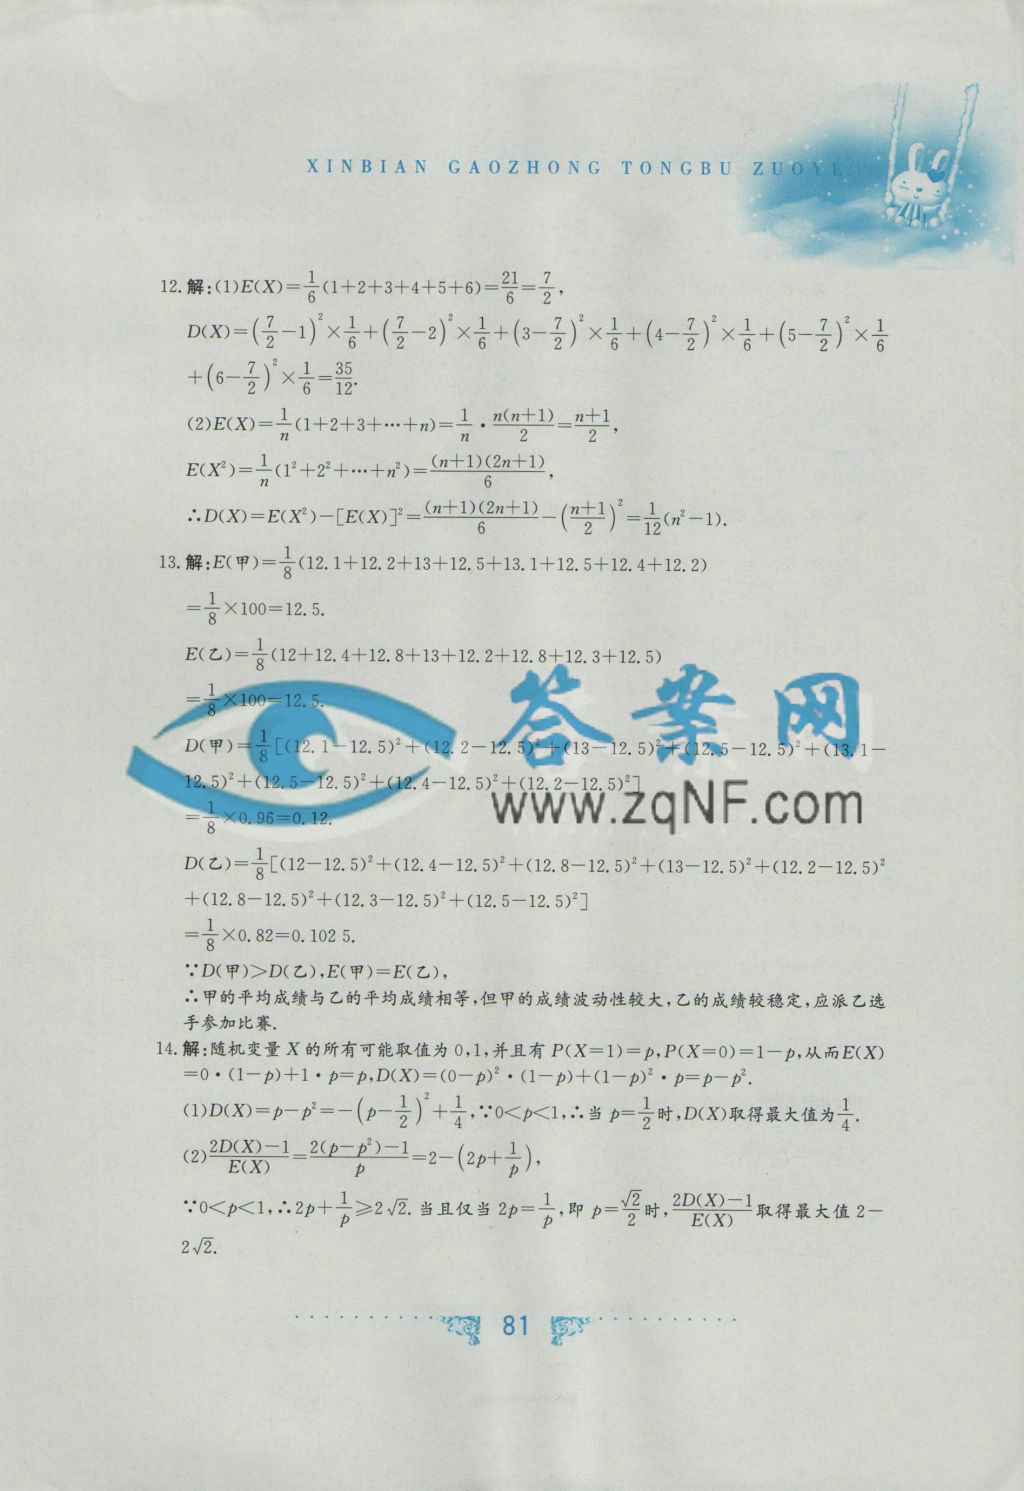 XINBIAN GAOZHONG TONGBU ZUOYE
12. 解:(1)E(X)=1/6(1+2+3+4+5+6)=21/6=7/2,
D(X)=(7/2-1)²×1/6+(7/2-2)²×1/6+(3-7/2)²×1/6+(4-7/2)²×1/6+(5-7/2)²×1/6
+(6-7/2)²×1/6=35/12.
(2)E(X)=1/n(1+2+3+…+n)=1/n·n(n+1)/2=(n+1)/2,
E(X²)=1/n(1²+2²+…+n²)=(n+1)(2n+1)/6,
∴D(X)=E(X²)-[E(X)]²=(n+1)(2n+1)/6-((n+1)/2)²=1/12(n²-1).
13. 解:E(甲)=1/8(12.1+12.2+13+12.5+13.1+12.5+12.4+12.2)
=1/8×100=12.5.
E(乙)=1/8(12+12.4+12.8+13+12.2+12.8+12.3+12.5)
=1/8×100=12.5.
答案网
D(甲)=1/8[(12.1-12.5)²+(12.2-12.5)²+(13-12.5)²+(12.5-12.5)²+(13.1-
12.5)²+(12.5-12.5)²+(12.4-12.5)²+(12.2-12.5)²]
www.zqNF.com
=1/8×0.96=0.12.
D(乙)=1/8[(12-12.5)²+(12.4-12.5)²+(12.8-12.5)²+(13-12.5)²+(12.2-12.5)²
+(12.8-12.5)²+(12.3-12.5)²+(12.5-12.5)²]
=1/8×0.82=0.102 5.
∵D(甲)>D(乙),E(甲)=E(乙),
∴甲的平均成绩与乙的平均成绩相等,但甲的成绩波动性较大,乙的成绩较稳定,应派乙选
手参加比赛.
14. 解:随机变量 X 的所有可能取值为 0,1,并且有 P(X=1)=p,P(X=0)=1-p,从而E(X)
=0·(1-p)+1·p=p,D(X)=(0-p)²·(1-p)+(1-p)²·p=p-p².
(1)D(X)=p-p²=-(p-1/2)²+1/4,∵0<p<1,∴当 p=1/2时,D(X)取得最大值为1/4.
(2)(2D(X)-1)/E(X)=(2(p-p²)-1)/p=2-(2p+1/p),
∵0<p<1,∴2p+1/p≥2√2. 当且仅当 2p=1/p,即 p=√2/2时,(2D(X)-1)/E(X)取得最大值 2-
2√2.
81